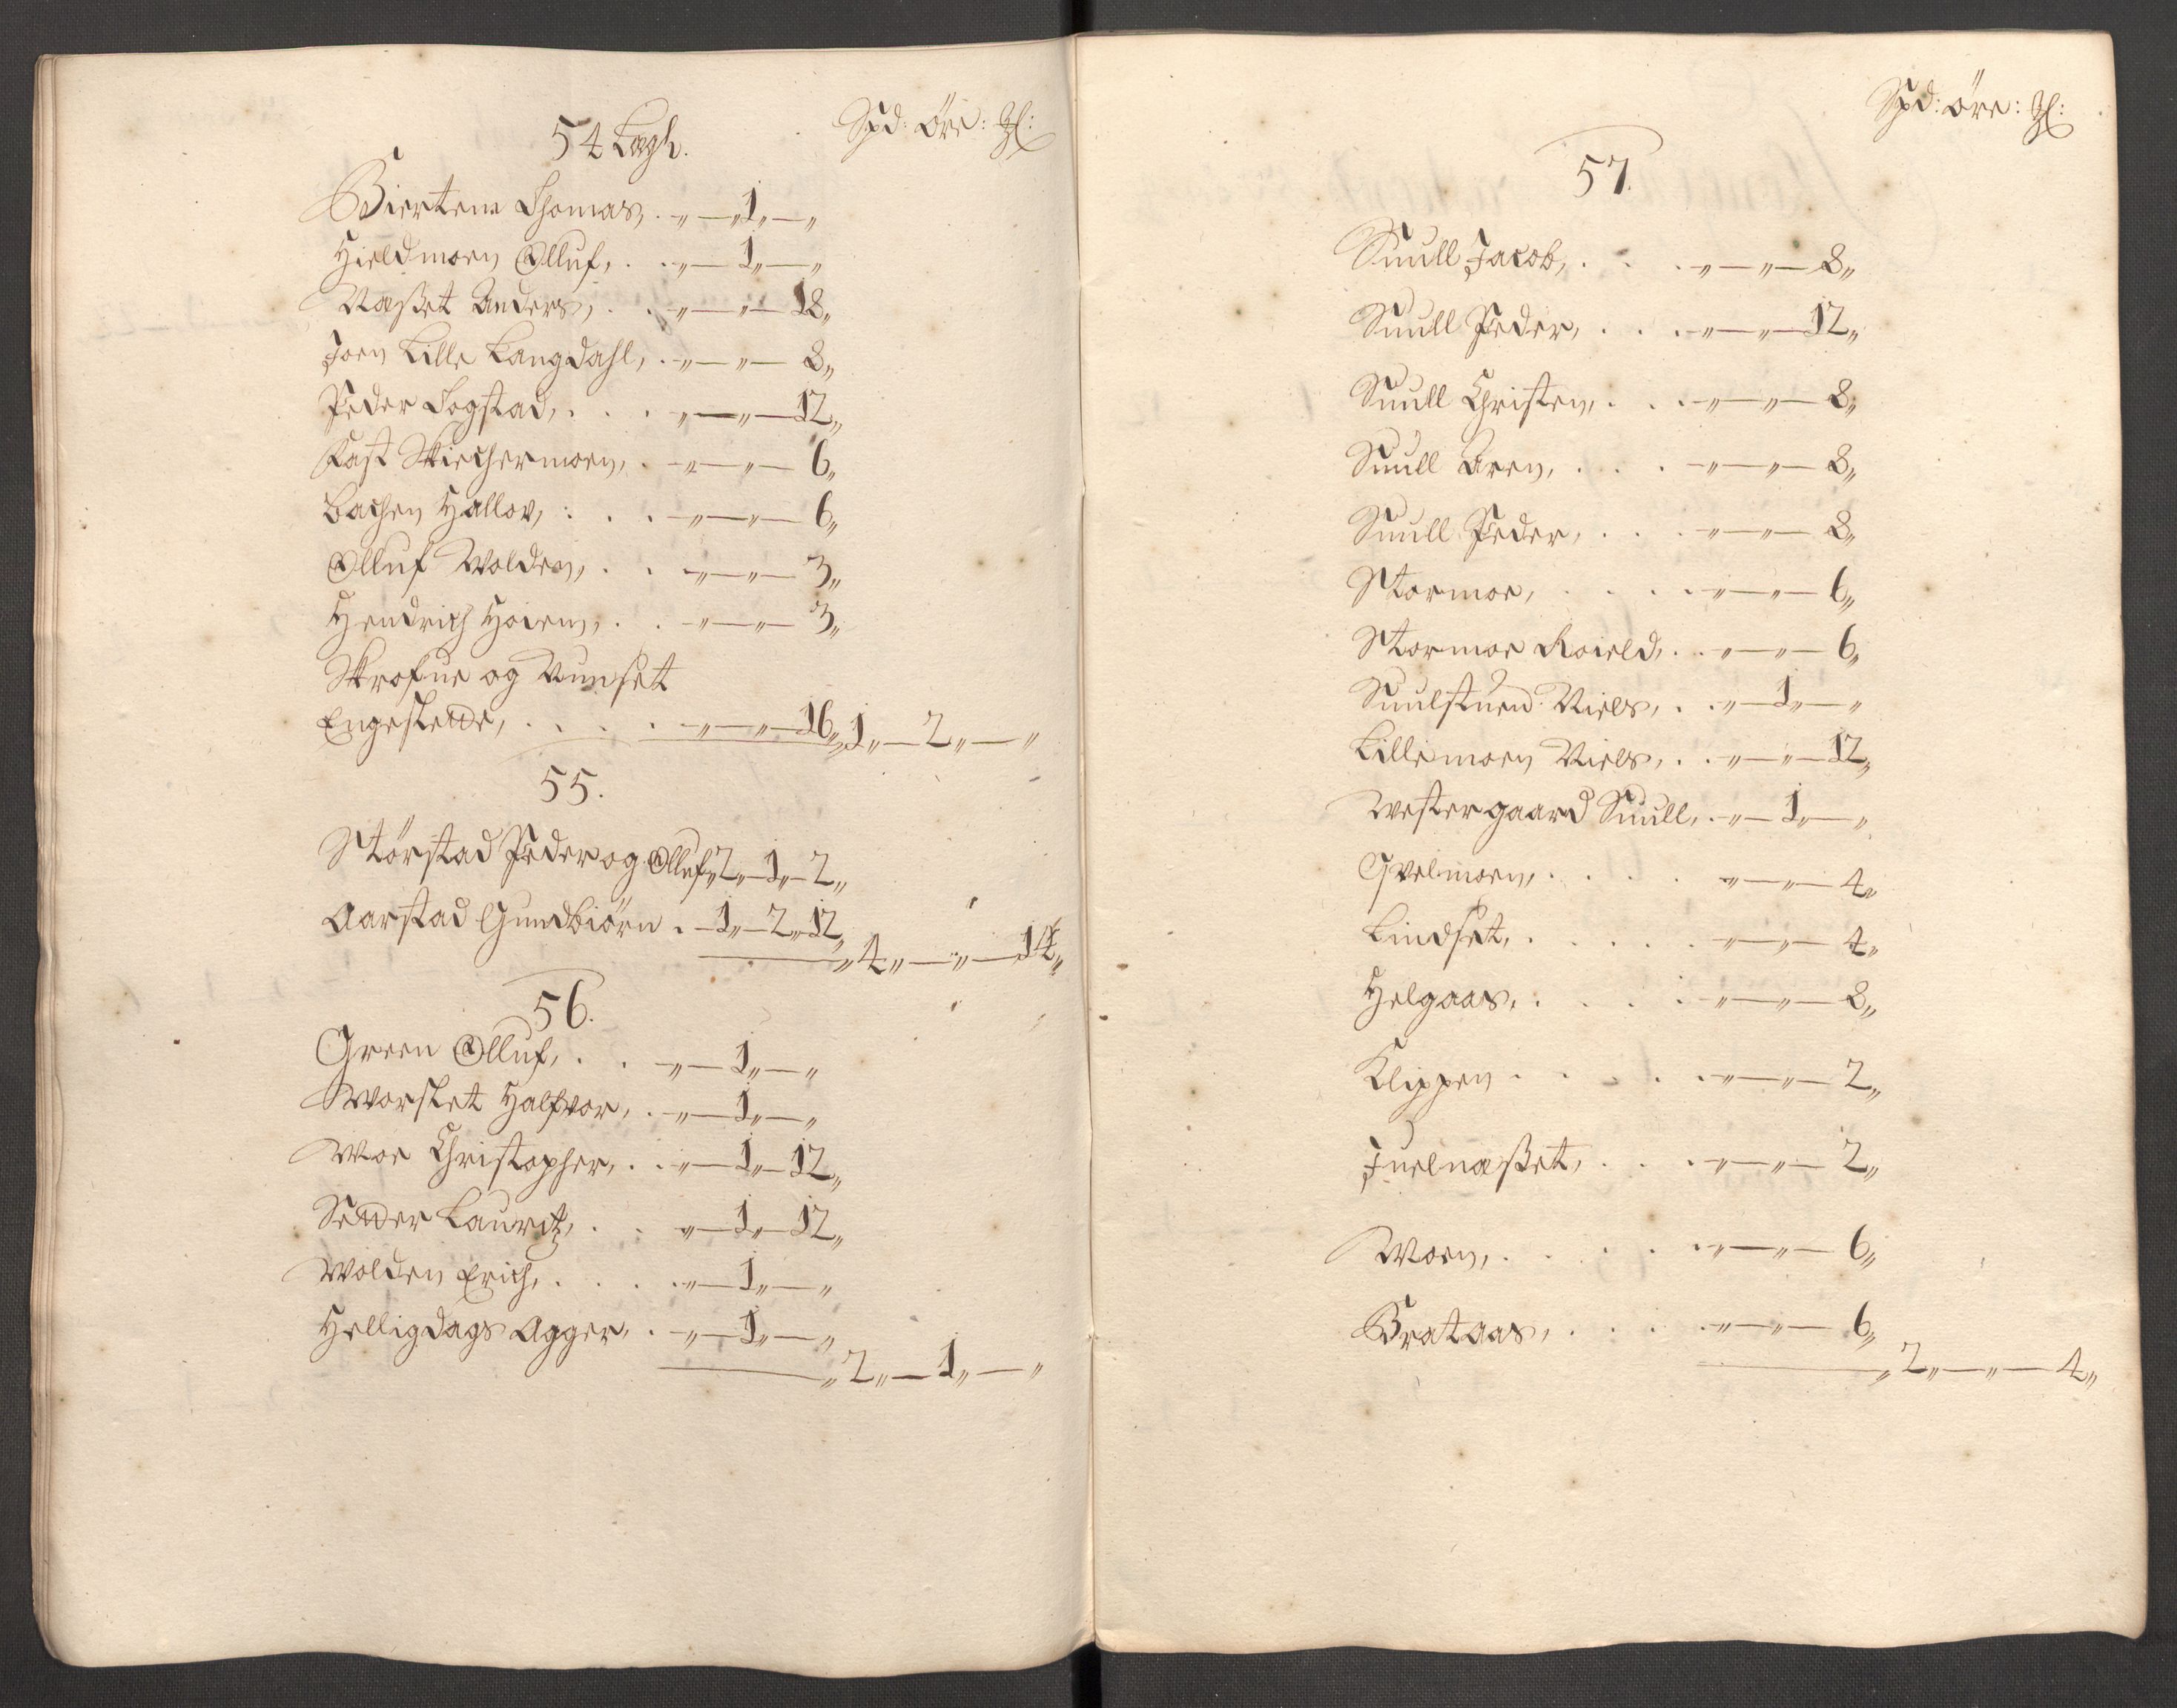 54 Lægh. Spd: Öre: 
Biertem Thomas, . „ — „1„ — „
Hieldmoen Olluf, . . „ — 1„ — „
Næsset Anders, . . „ — „ — 18„
Joen Lille Langdahl, . „ — „ — 8„
Peder Togstad, . . . „ — „ — 12„
Kast Skiechermoen, . „ — „ — 6„
Bachen Hallov, . . . „ — „ — 6„
Olluf Wolden, . . „ — „ — 3„
Hendrich Hoiem, . . „ — „ — 3„
Skrofue og Vunset
Engeslette, . . . . „ — „ — 16„ 1„ — 2„ — „
55.
Störstad Peder og Olluf „2„ — 1„ — 2„
Aarstad Gundbiörn . 1„ — 2„ 12„
„4„ — „ — 14„
56.
Green Olluf, . . „ — 1„ — „
Worslet Halfvor, . „ — 1„ — „
Moe Christopher, . . „ — 1„ — 12„
Setter Lauritz, . . „ — 1„ — 12„
Wolden Erich, . . . „ — 1„ — „
Helligdags Agger, . „ — 1„ — „
„2„ — 1„ — „
Spd: öre: 
57.
Suull Jacob, . . . „ — „ — 8„
Suull Peder, . . . „ — „ — 12„
Suull Christen, . . „ — „ — 8„
Suull Aren, . . . „ — „ — 8„
Suull Peder, . . . „ — „ — 8„
Stormoe, . . . . „ — „ — 6„
Stormoe Roield, . . „ — „ — 6„
Suulstuen Niels, . . „ — 1„ — „
Lillemoen Niels, . . „ — „ — 12„
Westergaard Suull, . „ — 1„ — „
Qvelmoen, . . . . „ — „ — 4„
Lindset, . . . . . „ — „ — 4„
Helgaas, . . . . „ — „ — 8„
Klippen . . . . . „ — „ — 2„
Juelnæsset, . . . „ — „ — 2„
Moen, . . . . . „ — „ — 6„
Brataas, . . . . „ — „ — 6„
„2„ — „ — 4„